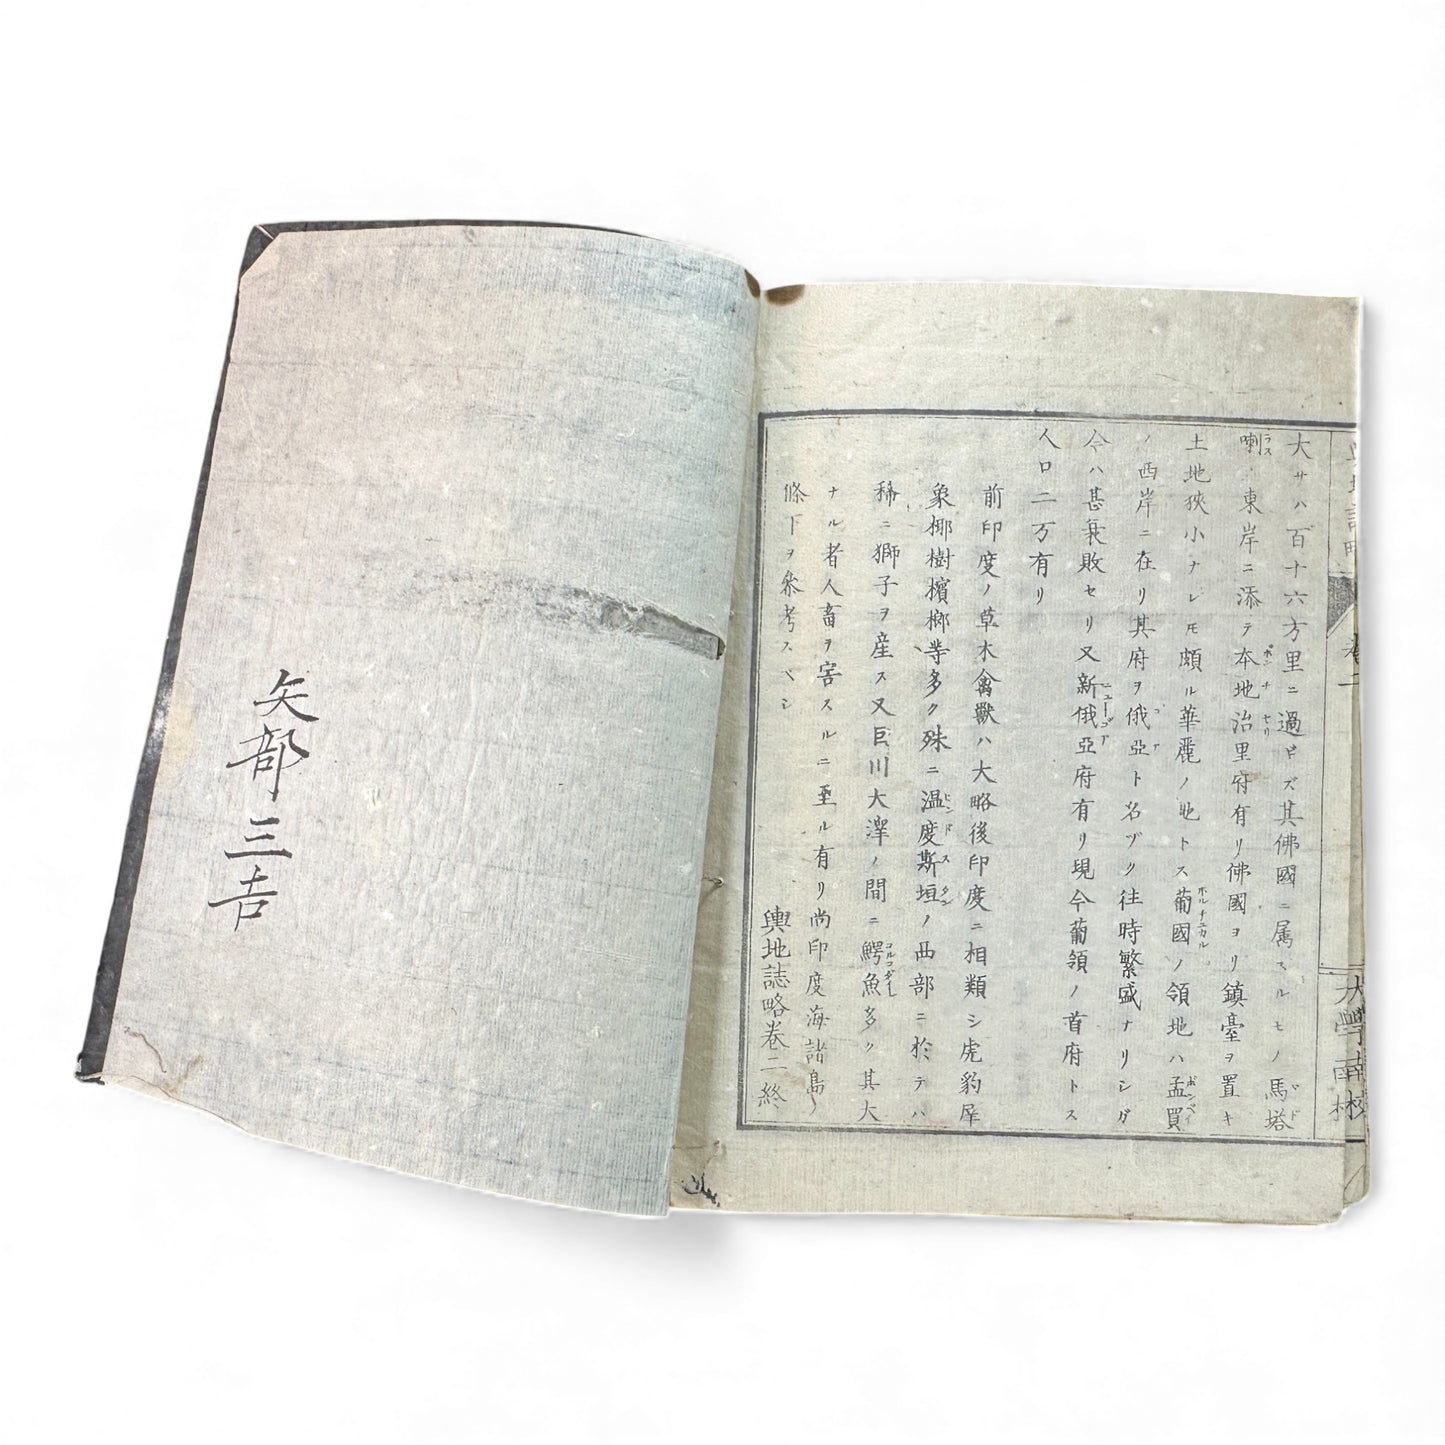 輿地誌略
卷二
大學南校
大サハ百十六方里ニ過ギズ其佛國ニ属スルモノ馬塔
喇ノ東岸ニ添テ本地治里府有リ佛國ヨリ鎮臺ヲ置キ
土地狹小ナレ𪜈頗ル華麗ノ地トス葡國ノ領地ハ孟買
ノ西岸ニ在リ其府ヲ俄亞ト名ヅク往時繁盛ナリシガ
今ハ甚衰敗セリ又新俄亞府有リ現今葡領ノ首府トス
人口二万有リ
前印度ノ草木禽獸ハ大略後印度ニ相類シ虎豹犀
象椰樹檳榔等多ク殊ニ温度斯垣ノ西部ニ於テハ
稀ニ獅子ヲ産ス又巨川大澤ノ間ニ鰐魚多ク其大
ナル者人畜ヲ害スルニ至ル有リ尚印度海諸島ノ
條下ヲ參考スベシ
輿地誌略卷二終
矢部三吉